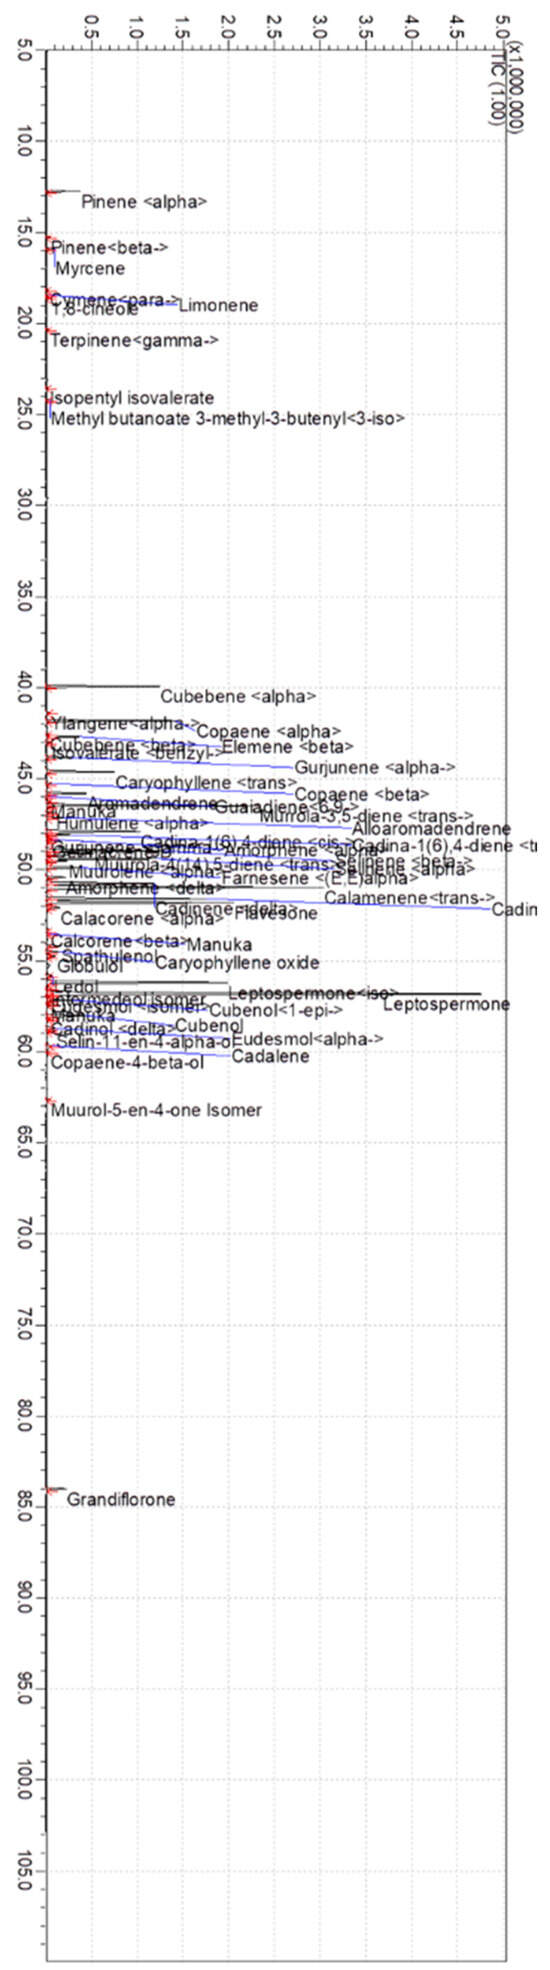 (x1,000,000)
TIC (1.00)
0.5
1.0
1.5
2.0
2.5
3.0
3.5
4.0
4.5
5.0
5.0
10.0
Pinene <alpha>
15.0
Pinene<beta->
Myrcene
Cymene<para->
Limonene
1,8-cineole
20.0
Terpinene<gamma->
Isopentyl isovalerate
25.0
Methyl butanoate 3-methyl-3-butenyl<3-iso>
30.0
35.0
40.0
Cubebene <alpha>
Ylangene<alpha->
Copaene <alpha>
Cubebene <beta>
Elemene <beta>
Isovalerate <benzyl->
Gurjunene <alpha->
45.0
Caryophyllene <trans>
Copaene <beta>
Aromadendrene
Guaiadiene<6,9->
Manuka
Murrola-3,5-diene <trans->
Humulene <alpha>
Alloaromadendrene
Cadina-1(6),4-diene <cis->
Cadina-1(6),4-diene <tr
Amorphene <alpha>
Selinene <beta->
50.0
Muurola-4(14),5-diene <trans>
Selinene <alpha>
Muurolene <alpha>
Farnesene <(E,E)alpha>
Amorphene <delta>
Calamenene <trans->
Cadinene <delta>
Cadin
Calacorene <alpha>
Flavesone
Calcorene <beta>
Manuka
55.0
Spathulenol
Caryophyllene oxide
Globulol
Ledol
Leptospermone<iso>
Intermedeol Isomer
Leptospermone
Eudesmol <isomer>
Cubenol<1-epi->
Manuka
Cadinol <delta>
Cubenol
Selin-11-en-4-alpha-ol
Eudesmol<alpha->
60.0
Cadalene
Copaene-4-beta-ol
Muurol-5-en-4-one Isomer
65.0
70.0
75.0
80.0
85.0
Grandiflorone
90.0
95.0
100.0
105.0